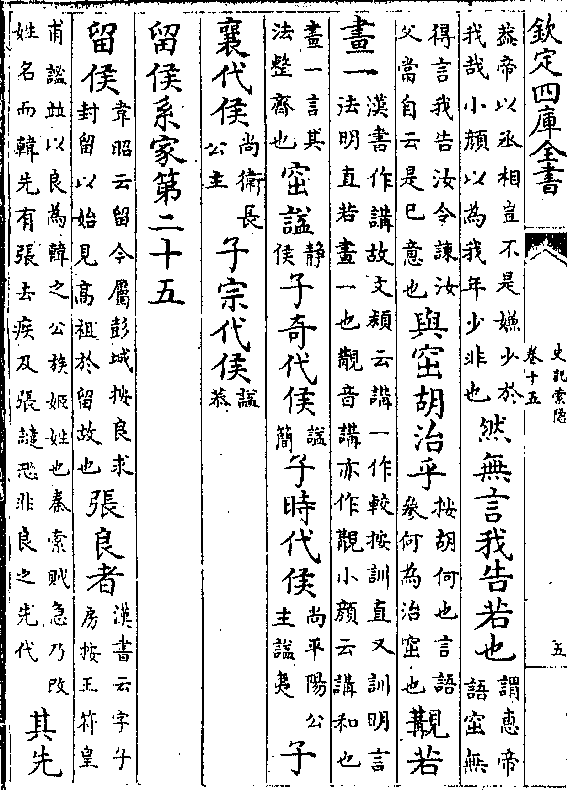 欽定四庫全書
史記索隱
卷十五
五
蓋帝以丞相豈不是嫌少於
我哉小顏以為我年少非也
然無言我告若也
謂惠帝
語窋無
得言我告汝令諫汝
父當自云是己意也
與窋胡治乎
按胡何也言語
參何為治窋也
覯若
畫一
漢書作講故文穎云講一作較按訓直又訓明言
法明直若畫一也覯音講亦作覯小顏云講和也
畫一言其
法整齊也
窋諡
靜
侯
子奇代侯
諡
簡
子時代侯
尚平陽公
主諡夷
子
襄代侯
尚衛長
公主
子宗代侯
諡
恭
留侯系家第二十五
留侯
韋昭云留今屬彭城按良求
封留以始見高祖於留故也
張良者
漢書云字子
房按王符皇
甫謐並以良為韓之公族姬姓也秦索賊急乃改
姓名而韓先有張去疾及張譴恐非良之先代
其先